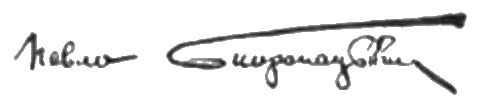 Павло Скоропадський